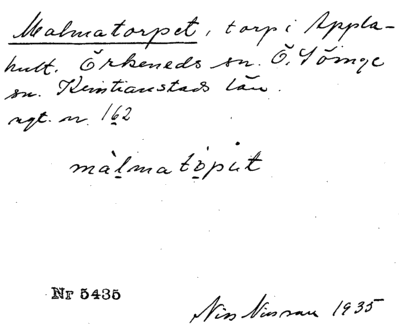 Malmatorpet, torp i Appla-
hult. Örkeneds sn. Ö. Göinge
sn. Kristianstads län.
rgt. nr. 162
màlmatòpùt
Nr 5435
Nils Nilsson 1935